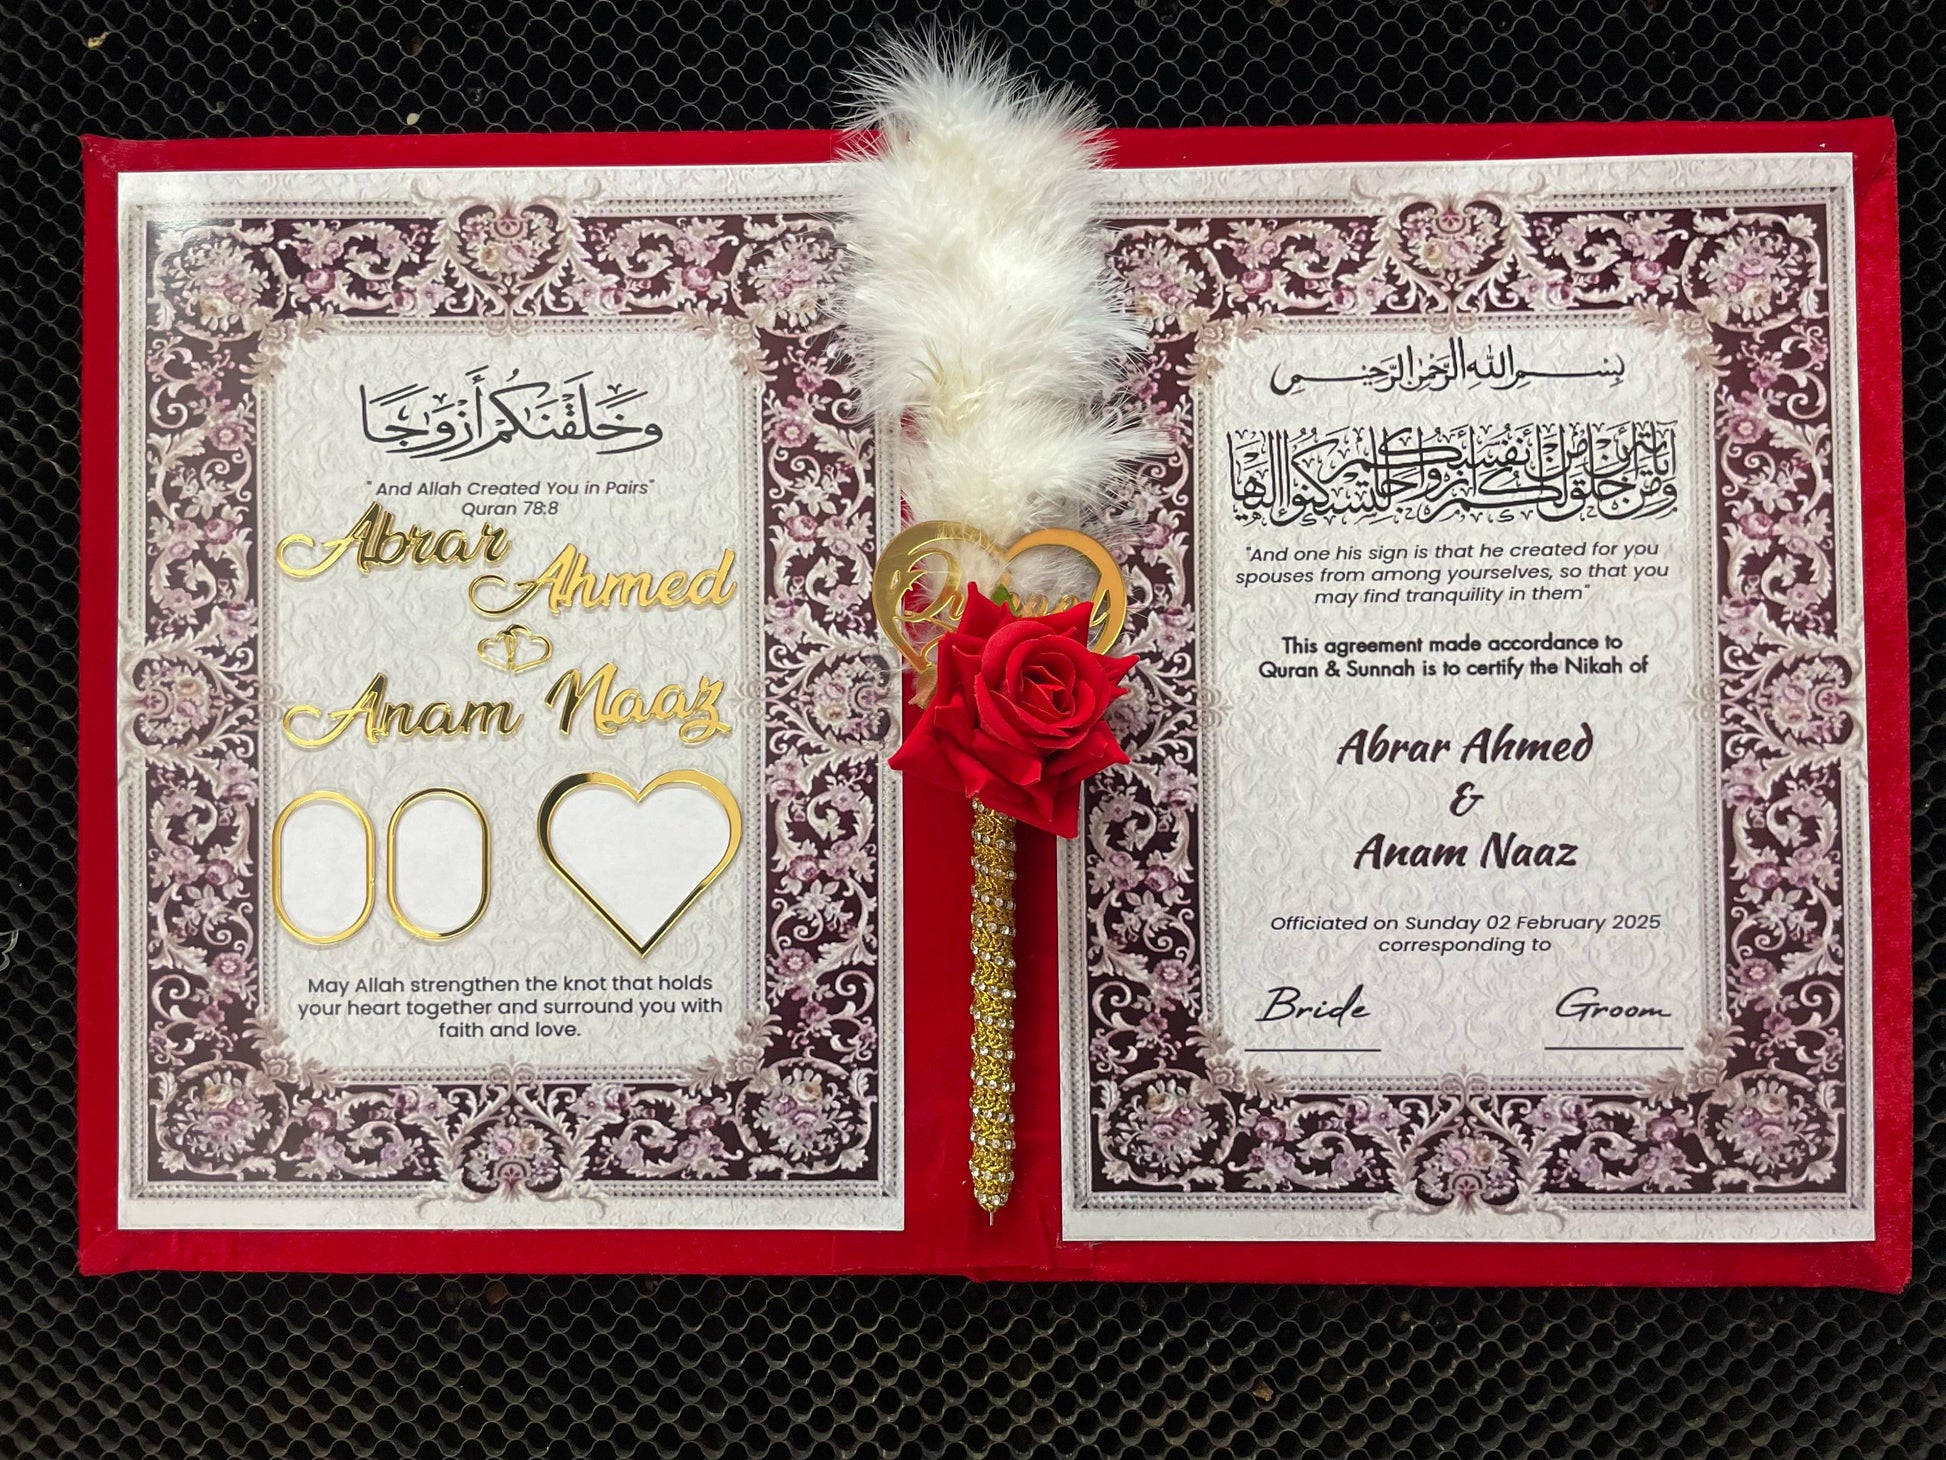 وَخَلَقْنَاكُمْ أَزْوَاجًا
" And Allah Created You in Pairs"
Quran 78:8
Abrar
Ahmed
Anam Naaz
May Allah strengthen the knot that holds
your heart together and surround you with
faith and love.
بِسْمِ اللهِ الرَّحْمٰنِ الرَّحِيْمِ
وَمِنْ آيَاتِهِ أَنْ خَلَقَ لَكُمْ مِنْ أَنْفُسِكُمْ أَزْوَاجًا لِتَسْكُنُوا إِلَيْهَا
"And one his sign is that he created for you
spouses from among yourselves, so that you
may find tranquility in them"
This agreement made accordance to
Quran & Sunnah is to certify the Nikah of
Abrar Ahmed
&
Anam Naaz
Officiated on Sunday 02 February 2025
corresponding to
Bride Groom